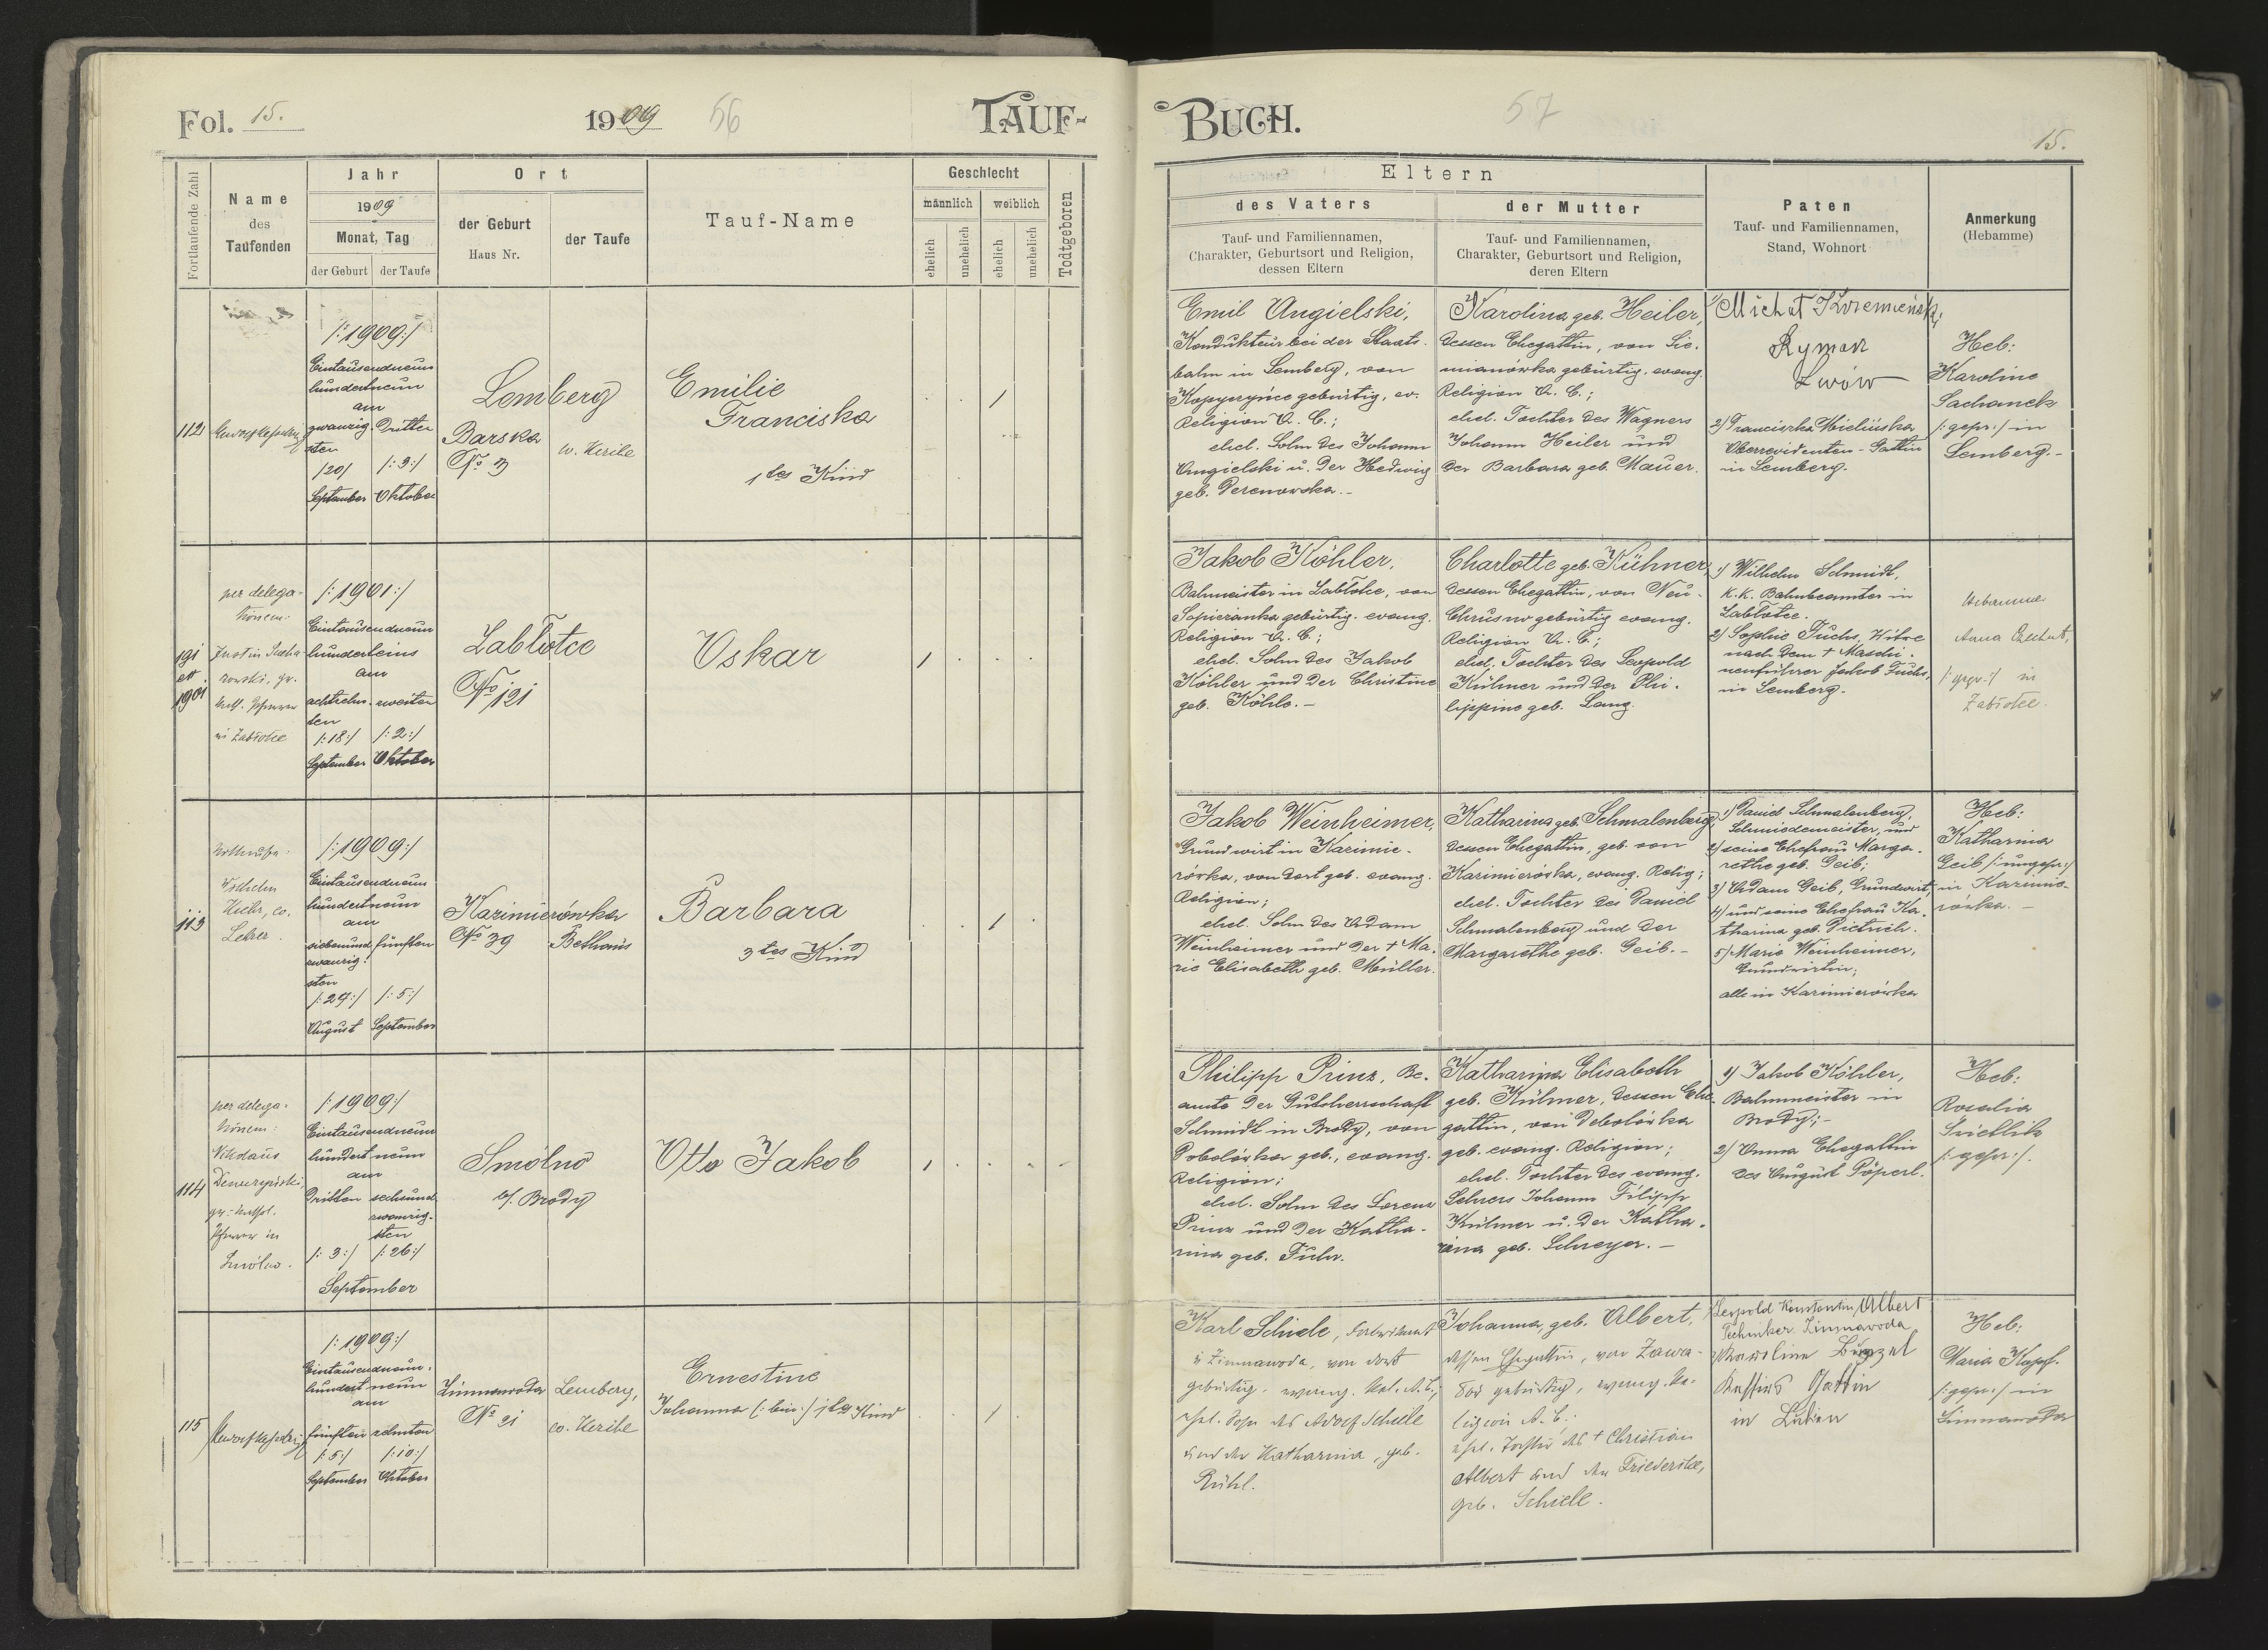 Fol. 15.
1909
56
TAUF-
Fortlaufende Zahl
Name
des
Taufenden
Jahr
1909
Monat, Tag
der Geburt
der Taufe
Ort
der Geburt
Haus Nr.
der Taufe
Tauf-Name
Geschlecht
männlich
weiblich
ehelich
unehelich
ehelich
unehelich
Todtgeboren
112
/:1909:/
Eintausendneun
hundertneun
am
zwanzig- Dritten
sten
/20/ /:3:/
September Oktober
Lemberg
Barska
No 3
ev. Kirche
Emilie
Franciska
1tes Kind
191
1901
per delega-
tionem:
Justin
Pfarrer
in Zabłotce
/:1901:/
Eintausendneun
hunderteins
am
achtzehn- zweiten
ten
/:18:/ /:2:/
September Oktober
Zabłotce
No 121
Oskar
113
Nothtaufe:
Wilhelm
ev.
Lehrer.
/:1909:/
Eintausendneun
hundertneun
am
siebenund fünften
zwanzig-
sten
/:27:/ /:5:/
August September
Kazimierówka
No 39
Bethaus
Barbara
3tes Kind
114
per delega-
tionem:
Nikolaus
Pfarrer in
Smólno.
/:1909:/
Eintausendneun
hundert neun
am
Dritten sechsund
zwanzig-
sten
/:3:/ /:26:/
September
Smólno
b/. Brody
Otto Jakob
115
/:1909:/
Eintausendneun-
hundert neun
am
fünften zehnten
/:5:/ /:10:/
September Oktober
Zimnawoda
No 21
Lemberg,
ev. Kirche
Ernestine
Johanna (:bin:) 1tes Kind
BUCH.
57
15.
Eltern
des Vaters
Tauf- und Familiennamen,
Charakter, Geburtsort und Religion,
dessen Eltern
der Mutter
Tauf- und Familiennamen,
Charakter, Geburtsort und Religion,
deren Eltern
Paten
Tauf- und Familiennamen,
Stand, Wohnort
Anmerkung
(Hebamme)
Emil Angielski,
Kondukteur bei der Staats-
bahn in Lemberg, von
Kopyczyńce gebürtig, ev.
Religion A. C.;
ehel. Sohn des Johann
Angielski u. der Hedwig
geb.
Karolina geb. Heiler,
dessen Ehegattin, von Sie-
mianówka gebürtig, evang.
Religion A. C.;
ehel. Tochter des Wagners
Johann Heiler und
der Barbara geb. Mauer.
1) Michał
Rymarz
Lwów
2) Franciszka Mielińska
Oberrevidenten-Gattin
in Lemberg.
Heb:
Karoline
Sachanek
/:gepr:/ in
Lemberg.-
Jakob Köhler,
Bahnmeister in Zabłotce, von
Sapieżanka gebürtig. evang.
Religion A. C.;
ehel. Sohn des Jakob
Köhler und der Christine
geb. Köhle.-
Charlotte geb. Kühner,
dessen Ehegattin, von Neu-
Chrusno gebürtig evang.
Religion A. C.;
ehel. Tochter des Leopold
Kühner und der Phi-
lippine geb. Lang.
1) Wilhelm Schmidt,
K.K. Bahnbeamter in
Zabłotce.
2) Sophie Fuchs, Witwe
nach dem + Maschi-
nenführer Jakob Fuchs,
in Lemberg.
Hebamme
Anna
/:gepr:/ in
Zabłotce.
Jakob Weinheimer,
Grundwirt in Kazimie-
rówka, von dort geb. evang.
Religion;
ehel. Sohn des Adam
Weinheimer und der + Ma-
rie Elisabeth geb. Müller.
Katharina geb. Schmalenberg,
dessen Ehegattin, geb. von
Kazimierówka, evang. Relig;
ehel. Tochter des Daniel
Schmalenberg und der
Margarethe geb. Geib.-
1) Daniel Schmalenberg,
Schmiedemeister, und
2) seine Ehefrau Marga-
rethe geb. Geib;
3) Adam Geib, Grundwirt,
4) und seine Ehefrau Ka-
tharina geb. Dietrich.
5) Marie Weinheimer,
Grundwirtin;
alle in Kazimierówka
Heb:
Katharina
Geib /:ungepr:/
in Kazimie-
rówka.-
Philipp Prinz, Be-
amte der Gutsherrschaft
Schmidt in Brody, von
geb., evang.
Religion;
ehel. Sohn des Lorenz
Prinz und der Katha-
rina geb. Fuhr.
Katharina Elisabeth
geb. Kühner, dessen Ehe-
gattin, von Debolówka
geb. evang. Religion;
ehel. Tochter des evang.
Lehrers Johann Filipp
Kühner u. der Katha-
rina geb. Schreyer.-
1) Jakob Köhler,
Bahnmeister in
Brody;-
2) Emma Ehegattin
des August Pöperl.
Heb:
Rosalia
/:gepr:/.
Karl Schiele,
in Zimnawoda, von dort
gebürtig, evang. Rel. A. C.,
ehel. Sohn des Adolf Schiele
und der Katharina, geb.
Rühl.
Johanna, geb. Albert,
dessen Ehegattin, von Zawa-
dów gebürtig, evang. Re-
ligion A. C.:
ehel. Tochter des + Christian
Albert und der Friederike,
geb. Schiele.
1) Leopold Konstantin Albert
Techniker Zimnawoda
2) Karoline
Gattin
in
Heb:
Maria Kopf.
/:gepr:/ in
Zimnawoda